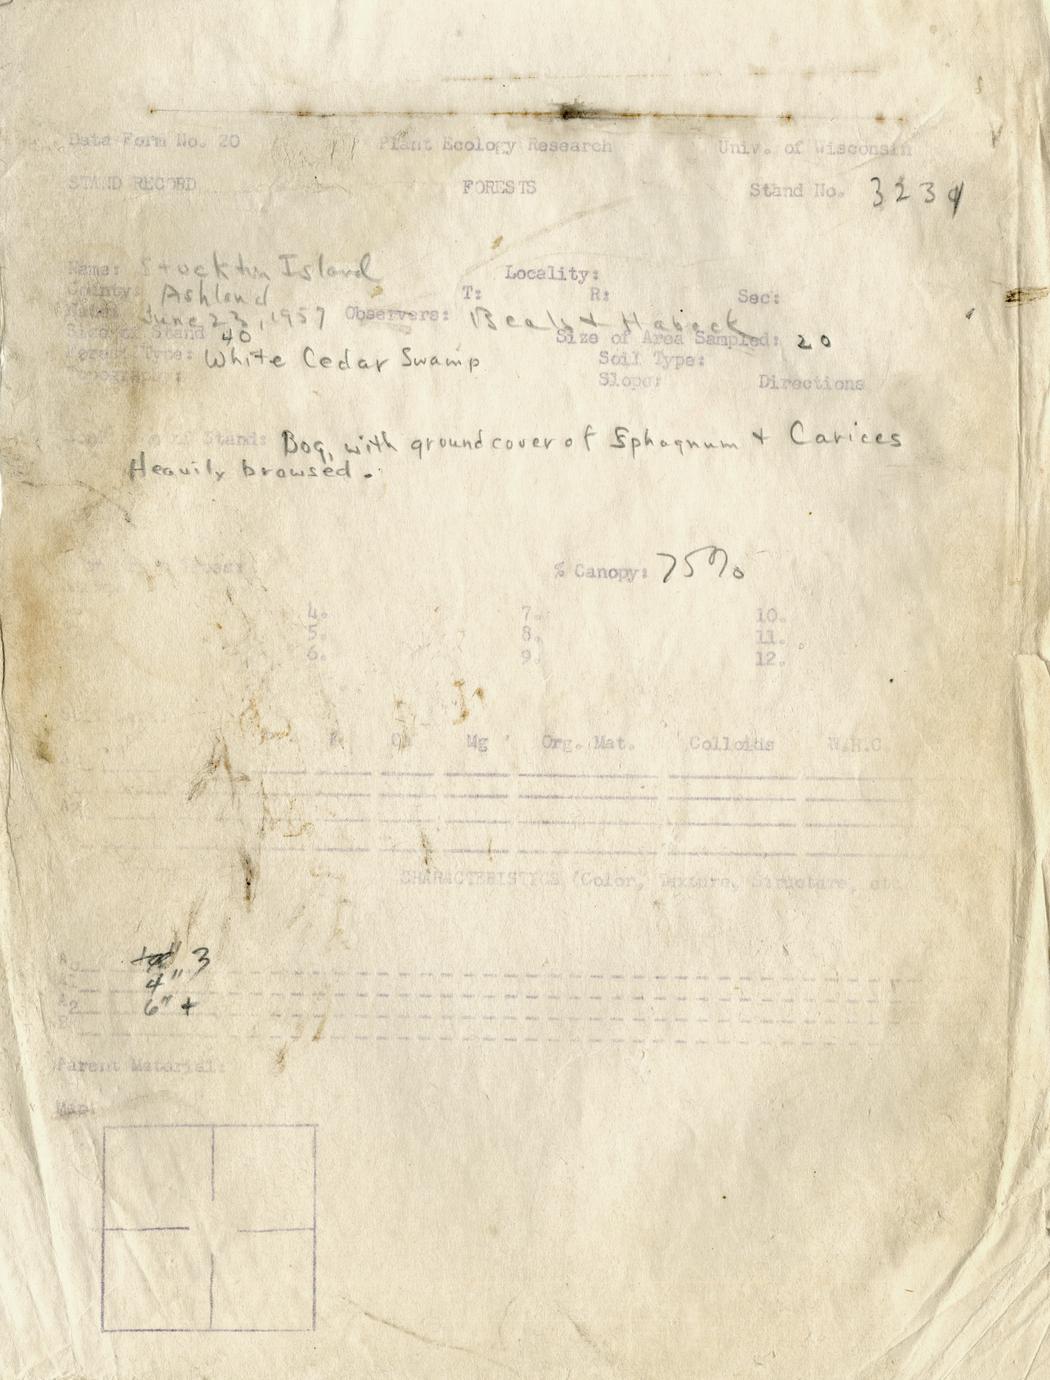 Data Form No. 20 Plant Ecology Research Univ. of Wisconsin
STAND RECORD FORESTS Stand No. 3234
Name: Stockton Island Locality:
County: Ashland T: R: Sec:
Date: June 23, 1957 Observers: Beals + Habeck
Size of Stand 40 Size of Area Sampled: 20
Forest Type: White Cedar Swamp Soil Type:
Topography: Slope: Directions
of Stand: Bog, with groundcover of Sphagnum + Carices
Heavily browsed.
% Canopy: 75%
4. 7. 10.
5. 8. 11.
6. 9. 12.
Mg Org. Mat. Colloids W.H.C.
CHARACTERISTICS (Color, Texture, Structure, etc.
3
4"
A2 6" +
Parent Material:
Map: